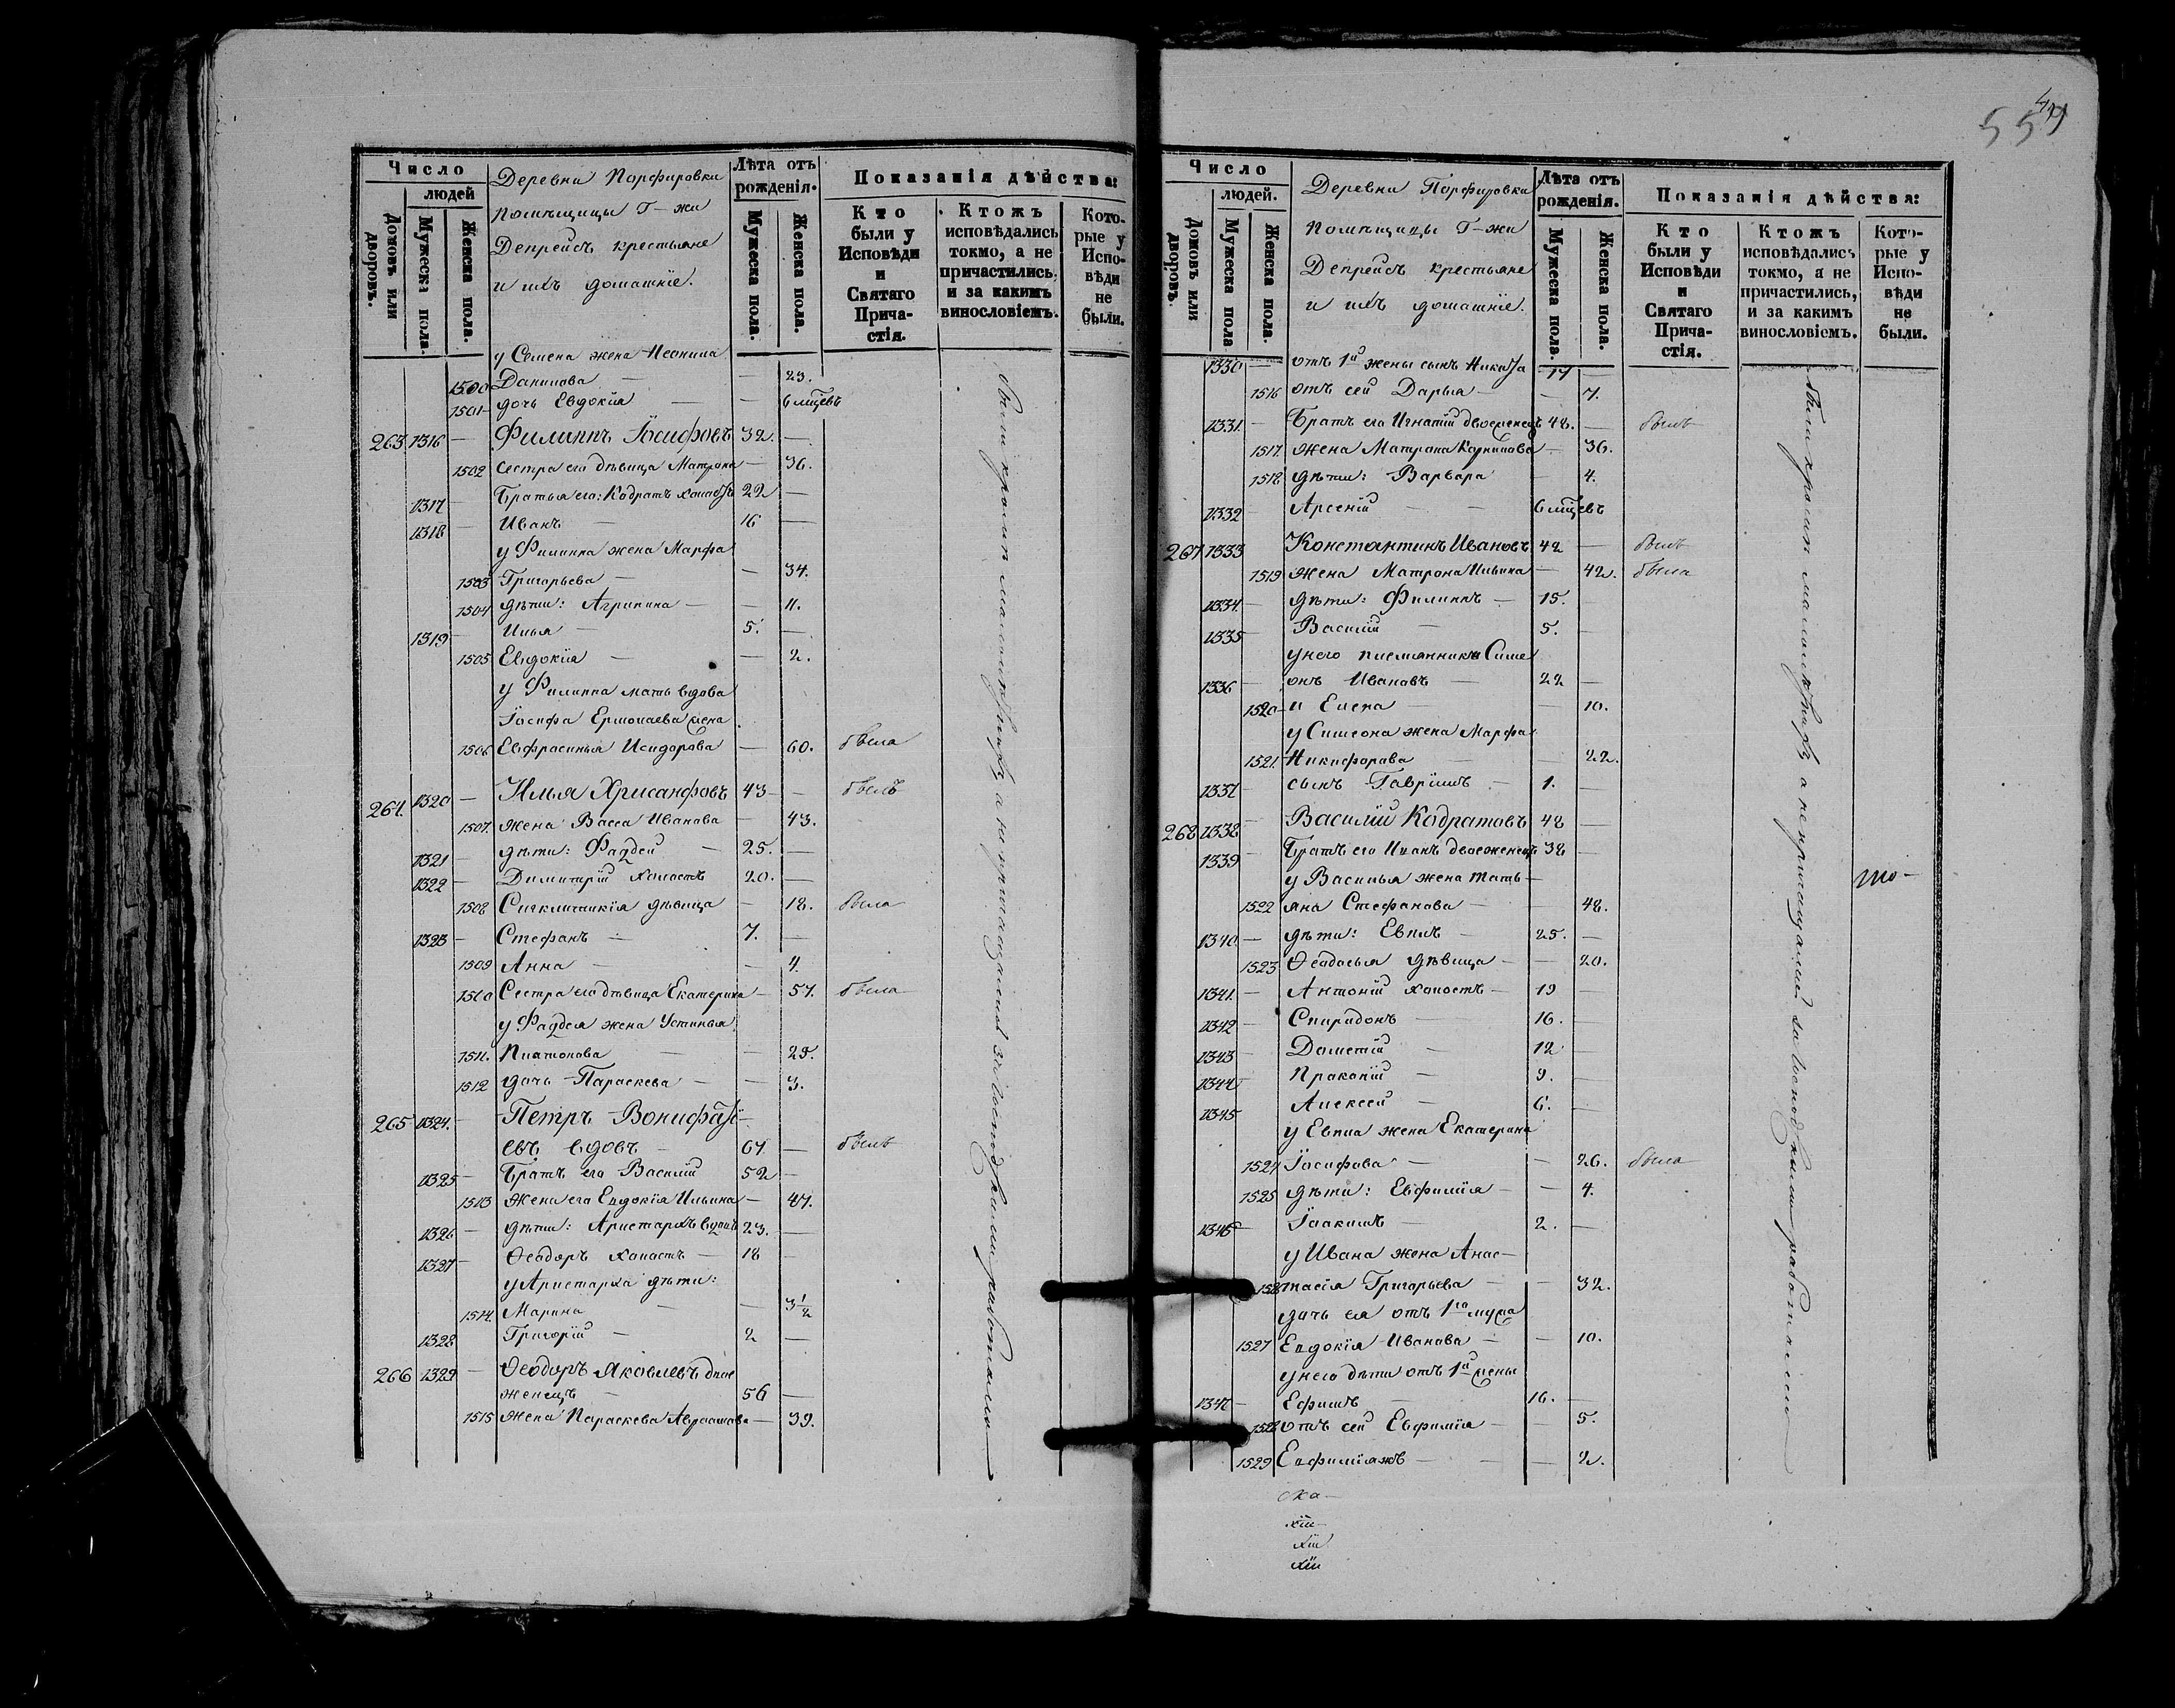 Число
людей
Домовъ или дворовъ.
Мужеска пола.
Женска пола.
Деревни Порфировки
помѣщицы Г-жи
Депрейсъ крестьяне
и ихъ домашніе.
Лѣта отъ рожденія.
Мужеска пола.
Женска пола.
Показанія дѣйства:
Кто были у Исповѣди и Святаго Причастія.
Ктожъ исповѣдались токмо, а не причастились, и за какимъ винословіемъ.
Которые у Исповѣди не были.
у Семена жена
1500 Данилова — — 23.
1501 дочь Евдокія — — 6 мцевъ
263 1316 — Филиппъ Іосифовъ 32. —
1502 сестра его дѣвица Матрона — 36.
1317 — Братья его: Кодратъ холостъ 22 —
1318 — Иванъ — 16 —
у Филиппа жена Марфа
1503 Григорьева — — 34.
1504 дѣти: Агрипина — — 11.
1319 — Илья — 5. —
1505 Евдокія — — 2.
у Филиппа мать вдова
Іосифа Ермолаева жена
1506 Евфросинья Исидорова — 60. была
264. 1320 — Илья Хрисанфовъ 43 — былъ
1507. жена Васса Иванова — 43.
1321 — дѣти: Фаддей — 25. —
1322 — Димитрій холостъ 20. —
1508 Сигклитикія дѣвица — 18. была
1323 — Стефанъ — 7. —
1509 Анна — — 4.
1510 Сестра его дѣвица Екатерина — 57. была
у Фаддея жена Устинья
1511. Платонова — — 25.
1512 дочь Параскева — — 3.
265 1324. — Петръ Вонифатьевъ вдовъ — 67 — былъ
1325 — Братъ его Василій 52 —
1513 Жена его Евдокія Ильина — 47.
1326 — дѣти: Аристархъ вдовъ 23. —
1327 — Ѳеодоръ холостъ — 18 —
у Аристарха дѣти:
1514. Марина — — 3 1/2
1328 — Григорій — 2 —
266 1329 — Ѳеодоръ Яковлевъ двоеженецъ — 56 —
1515 жена Параскева Авраамова — 39.
были кромѣ малолѣтнихъ, а не причащались за Господскими работами
Число
людей.
Домовъ или дворовъ.
Мужеска пола
Женска пола.
Деревни Порфировки
помѣщицы Г-жи
Депрейсъ крестьяне
и ихъ домашніе.
Лѣта отъ рожденія.
Мужеска пола.
Женска пола.
Показанія дѣйства:
Кто были у Исповѣди и Святаго Причастія.
Ктожъ исповѣдались токмо, а не причастились, и за какимъ винословіемъ.
Которые у Исповѣди не были.
1330 — отъ 1й жены сынъ Никита — 17 —
1516 отъ сей Дарья — — 7.
1331. — Братъ его Игнатій двоеженецъ 48. — былъ
1517. жена Матрона Корнилова — 36.
1518 дѣти: Варвара — 4.
1332 — Арсеній — — 6 мцевъ
267 1333 Константинъ Ивановъ 42 — былъ
1519 жена Матрона Ильина — 42. была
1334. — дѣти: Филиппъ — 15.
1335 — Василій — 5. —
у него племянники Симе
1336 — онъ Ивановъ — 22 —
1520 и Елена — — 10.
у Симеона жена Марфа
1521. Никифорова — — 22.
1337 — сынъ Гавріилъ — 1. —
268 1338 — Василій Кодратовъ 48 —
1339 — Братъ его Иванъ двоеженецъ 38 —
у Василья жена Тать—
1522 яна Стефанова — — 48.
1340. — дѣти: Евплъ — 25. —
1523 Ѳеодосья дѣвица — — 20.
1341. — Антоній холостъ — 19 —
1342 — Спиридонъ — 16. —
1343 — Дометій — 12 —
1344 — Прокопій — 9. —
1345 Алексѣй — 6. —
у Евпла жена Екатерина
1524 Іосифова — — 26. была
1525 дѣти: Евфимія — — 4.
1346 Іоакимъ — 2. —
у Ивана жена Анас—
тасія Григорьева — — 32.
дочь ея отъ 1го мужа
1527 Евдокія Иванова — — 10.
у него дѣти отъ 1й жены
1347 — Ефимъ — 16. —
1528 отъ сей Евфимія — — 5.
1529 — — 2.
были кромѣ малолѣтнихъ, а не причащались за Господскими работами